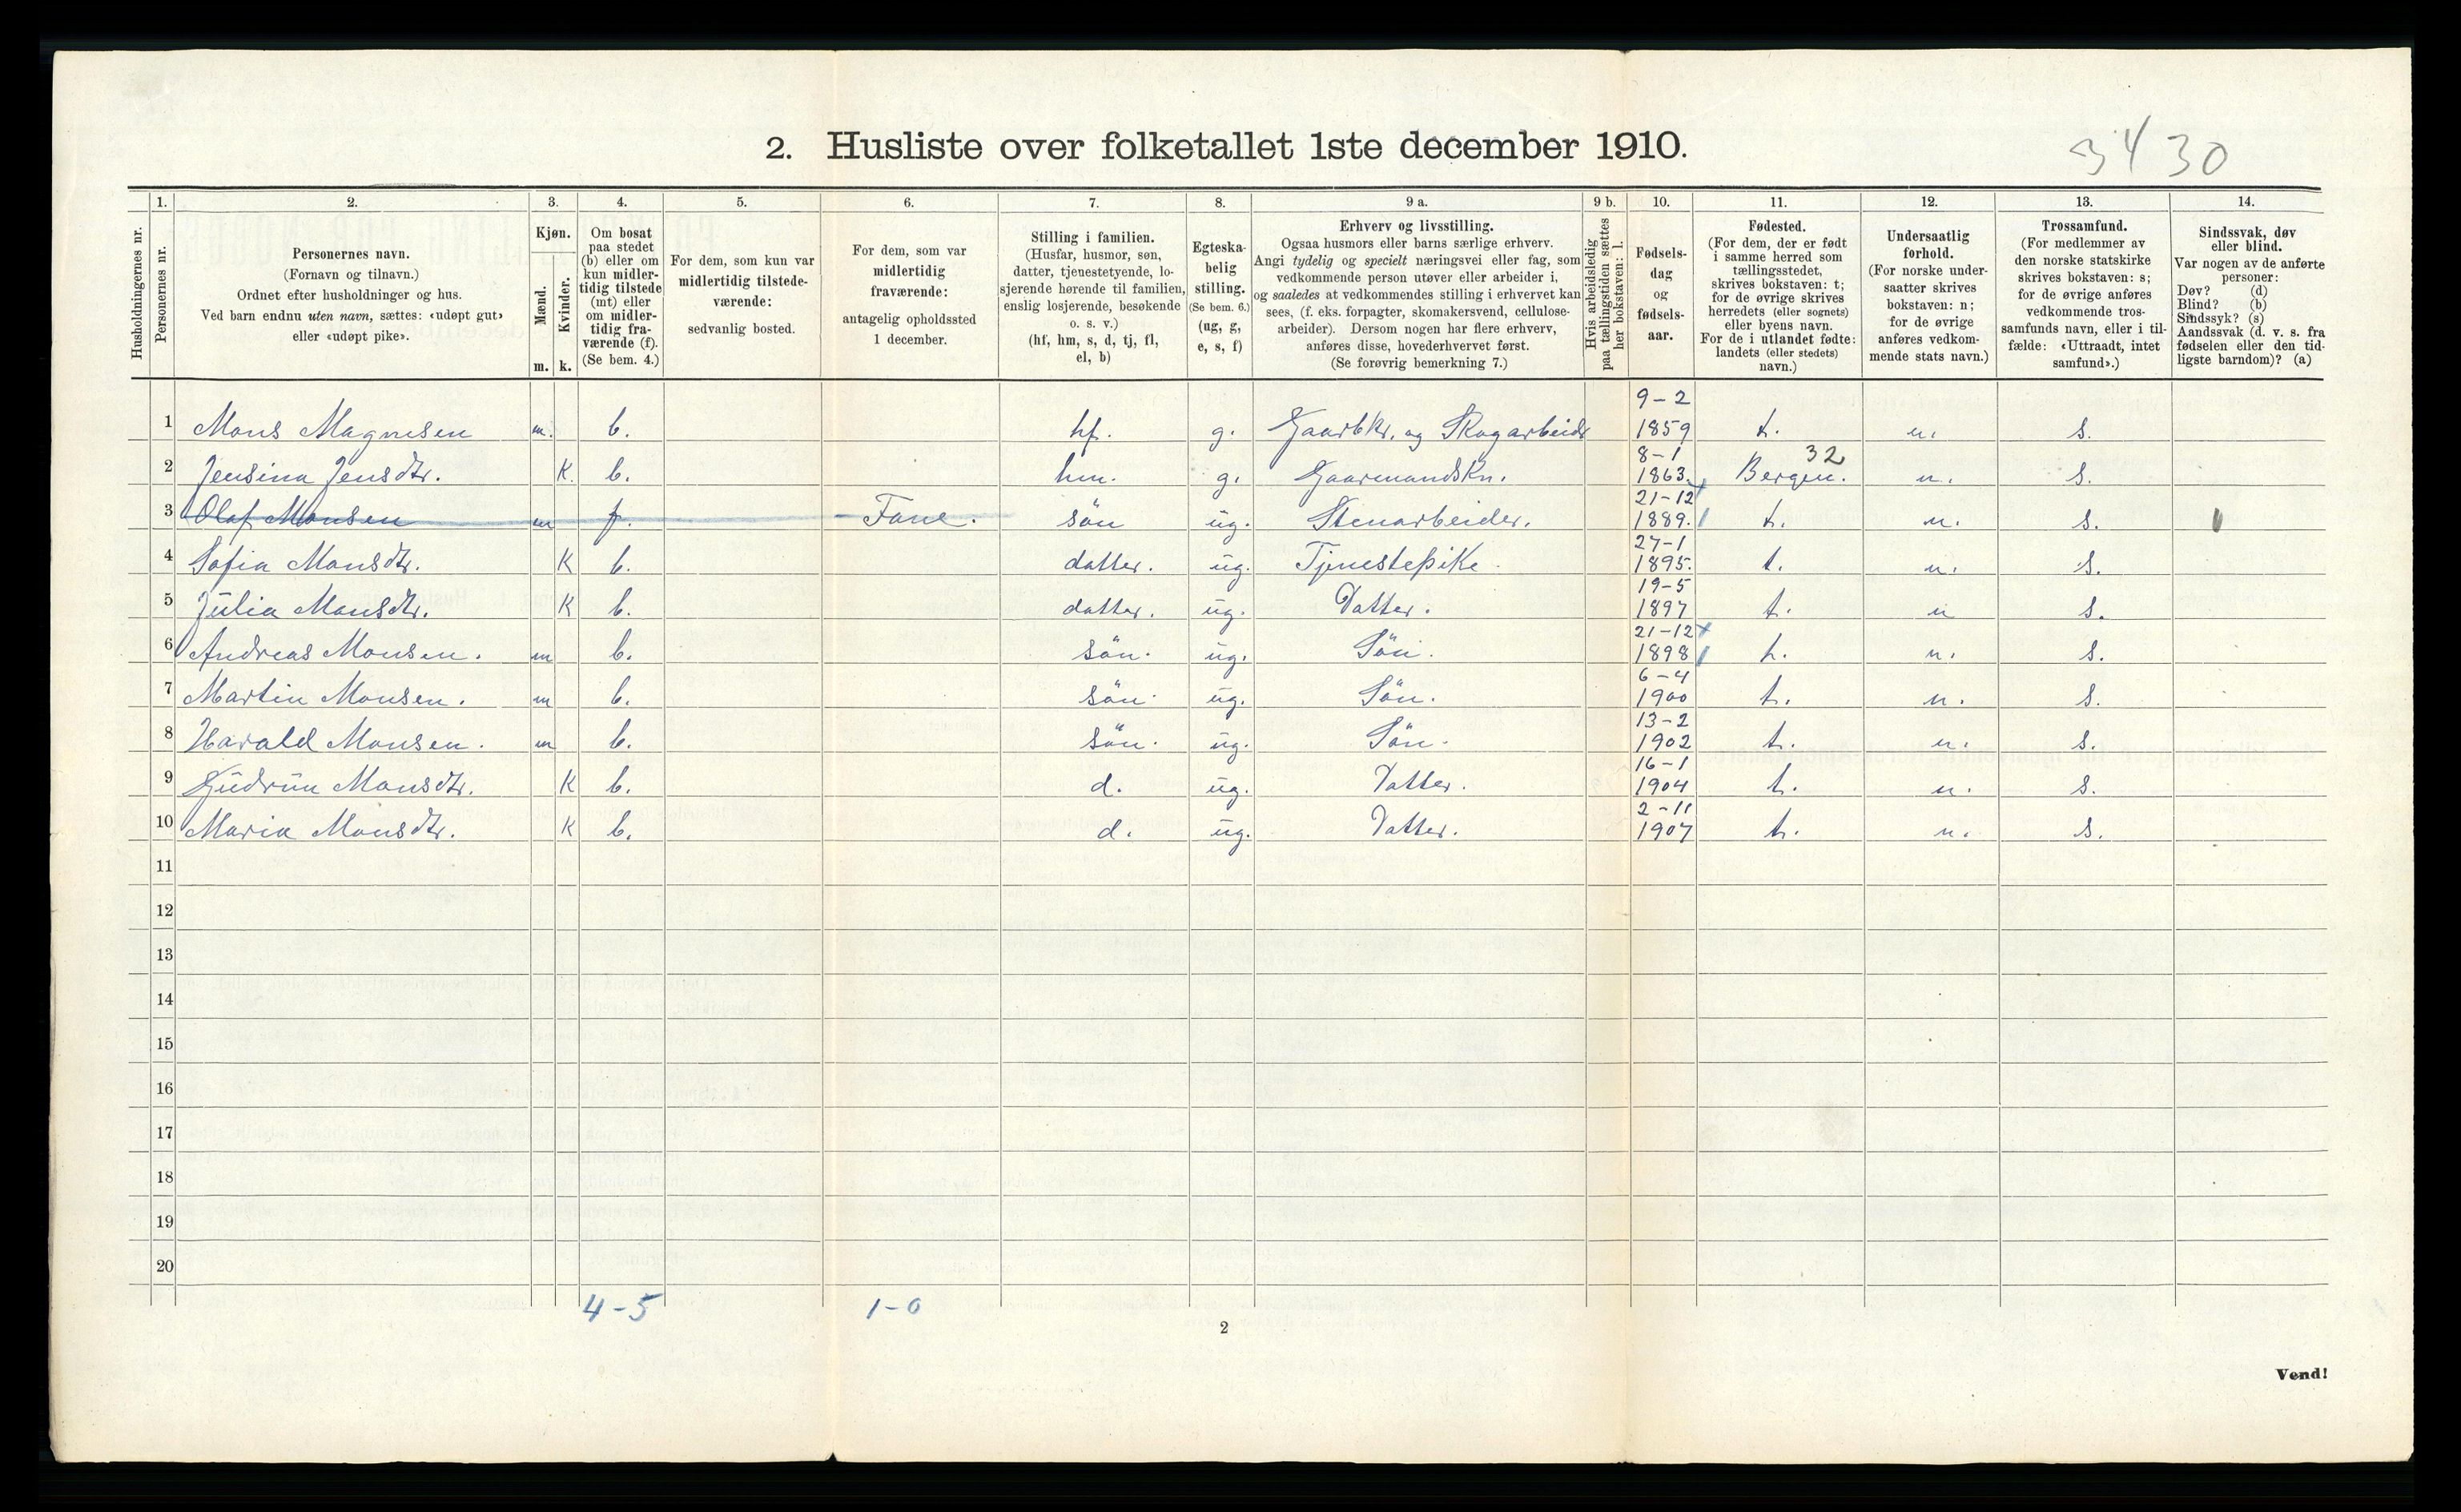 3430
2. Husliste over folketallet 1ste december 1910.
1. 2. 3. 4. 5. 6. 7. 8. 9 a. 9 b. 10. 11. 12. 13. 14.
Husholdningernes nr.
Personernes nr.
Personernes navn.
(Fornavn og tilnavn.)
Ordnet efter husholdninger og hus.
Ved barn endnu uten navn, sættes: «udøpt gut»
eller «udøpt pike».
Kjøn.
Mænd.
Kvinder.
m. k.
Om bosat
paa stedet
(b) eller om
kun midler-
tidig tilstede
(mt) eller
om midler-
tidig fra-
værende (f).
(Se bem. 4.)
For dem, som kun var
midlertidig tilstede-
værende:
sedvanlig bosted.
For dem, som var
midlertidig
fraværende:
antagelig opholdssted
1 december.
Stilling i familien.
(Husfar, husmor, søn,
datter, tjenestetyende, lo-
sjerende hørende til familien,
enslig losjerende, besøkende
o. s. v.)
(hf, hm, s, d, tj, fl,
el, b)
Egteska-
belig
stilling.
(Se bem. 6.)
(ug, g,
e, s, f)
Erhverv og livsstilling.
Ogsaa husmors eller barns særlige erhverv.
Angi tydelig og specielt næringsvei eller fag, som
vedkommende person utøver eller arbeider i,
og saaledes at vedkommendes stilling i erhvervet kan
sees, (f. eks. forpagter, skomakersvend, cellulose-
arbeider). Dersom nogen har flere erhverv,
anføres disse, hovederhvervet først.
(Se forøvrig bemerkning 7.)
Hvis arbeidsledig
paa tællingstiden sættes
her bokstaven: l.
Fødsels-
dag
og
fødsels-
aar.
Fødested.
(For dem, der er født
i samme herred som
tællingsstedet,
skrives bokstaven: t;
for de øvrige skrives
herredets (eller sognets)
eller byens navn.
For de i utlandet fødte:
landets (eller stedets)
navn.)
Undersaatlig
forhold.
(For norske under-
saatter skrives
bokstaven: n;
for de øvrige
anføres vedkom-
mende stats navn.)
Trossamfund.
(For medlemmer av
den norske statskirke
skrives bokstaven: s;
for de øvrige anføres
vedkommende tros-
samfunds navn, eller i til-
fælde: «Uttraadt, intet
samfund».)
Sindssvak, døv
eller blind.
Var nogen av de anførte
personer:
Døv? (d)
Blind? (b)
Sindssyk? (s)
Aandssvak (d. v. s. fra
fødselen eller den tid-
ligste barndom)? (a)
1 Mons Magnesen m. b. hf. g. Gaarbkr. og Skogarbeidr 9-2 1859 t. n. s.
2 Jensina Jensdtr. K. b. hm. g. Gaarmandskn. 8-1 1863. 32 Bergen. n. s.
3 Olaf Monsen m f. Fane. sön ug. Stenarbeider. 21-12 1889. t. n. s.
4 Sofia Monsdtr. K b. datter. ug. Tjenestepike 27-1 1895. t. n. s.
5 Julia Monsdtr. K b. datter. ug. Datter. 19-5 1897 t. n s.
6 Andreas Monsen. m b. sön. ug. Sön. 21-12 1898 t. n. s.
7 Martin Monsen. m b. sön. ug. Sön. 6-4 1900 t. n. s.
8 Harald Monsen. m b. sön. ug. Sön. 13-2 1902 t. n. s.
9 Gudrun Monsdtr. K b. d. ug. Datter. 16-1 1904 t. n. s.
10 Maria Monsdtr. K b. d. ug. Datter. 2-11 1907 t. n. s.
11
12
13
14
15
16
17
18
19
20
4-5 1-0
2
Vend!